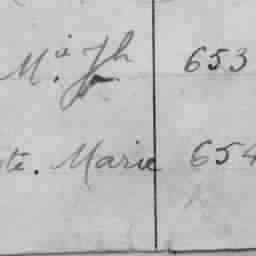 M.ie Jh 653
te. Marie 654